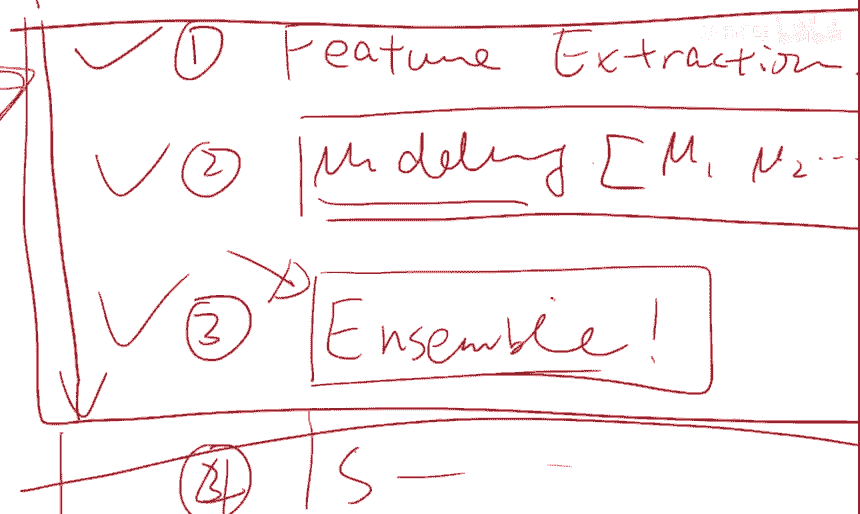 ① Feature Extraction
② Modeling [M₁ M₂ ...
③ Ensemble!
④ S — –